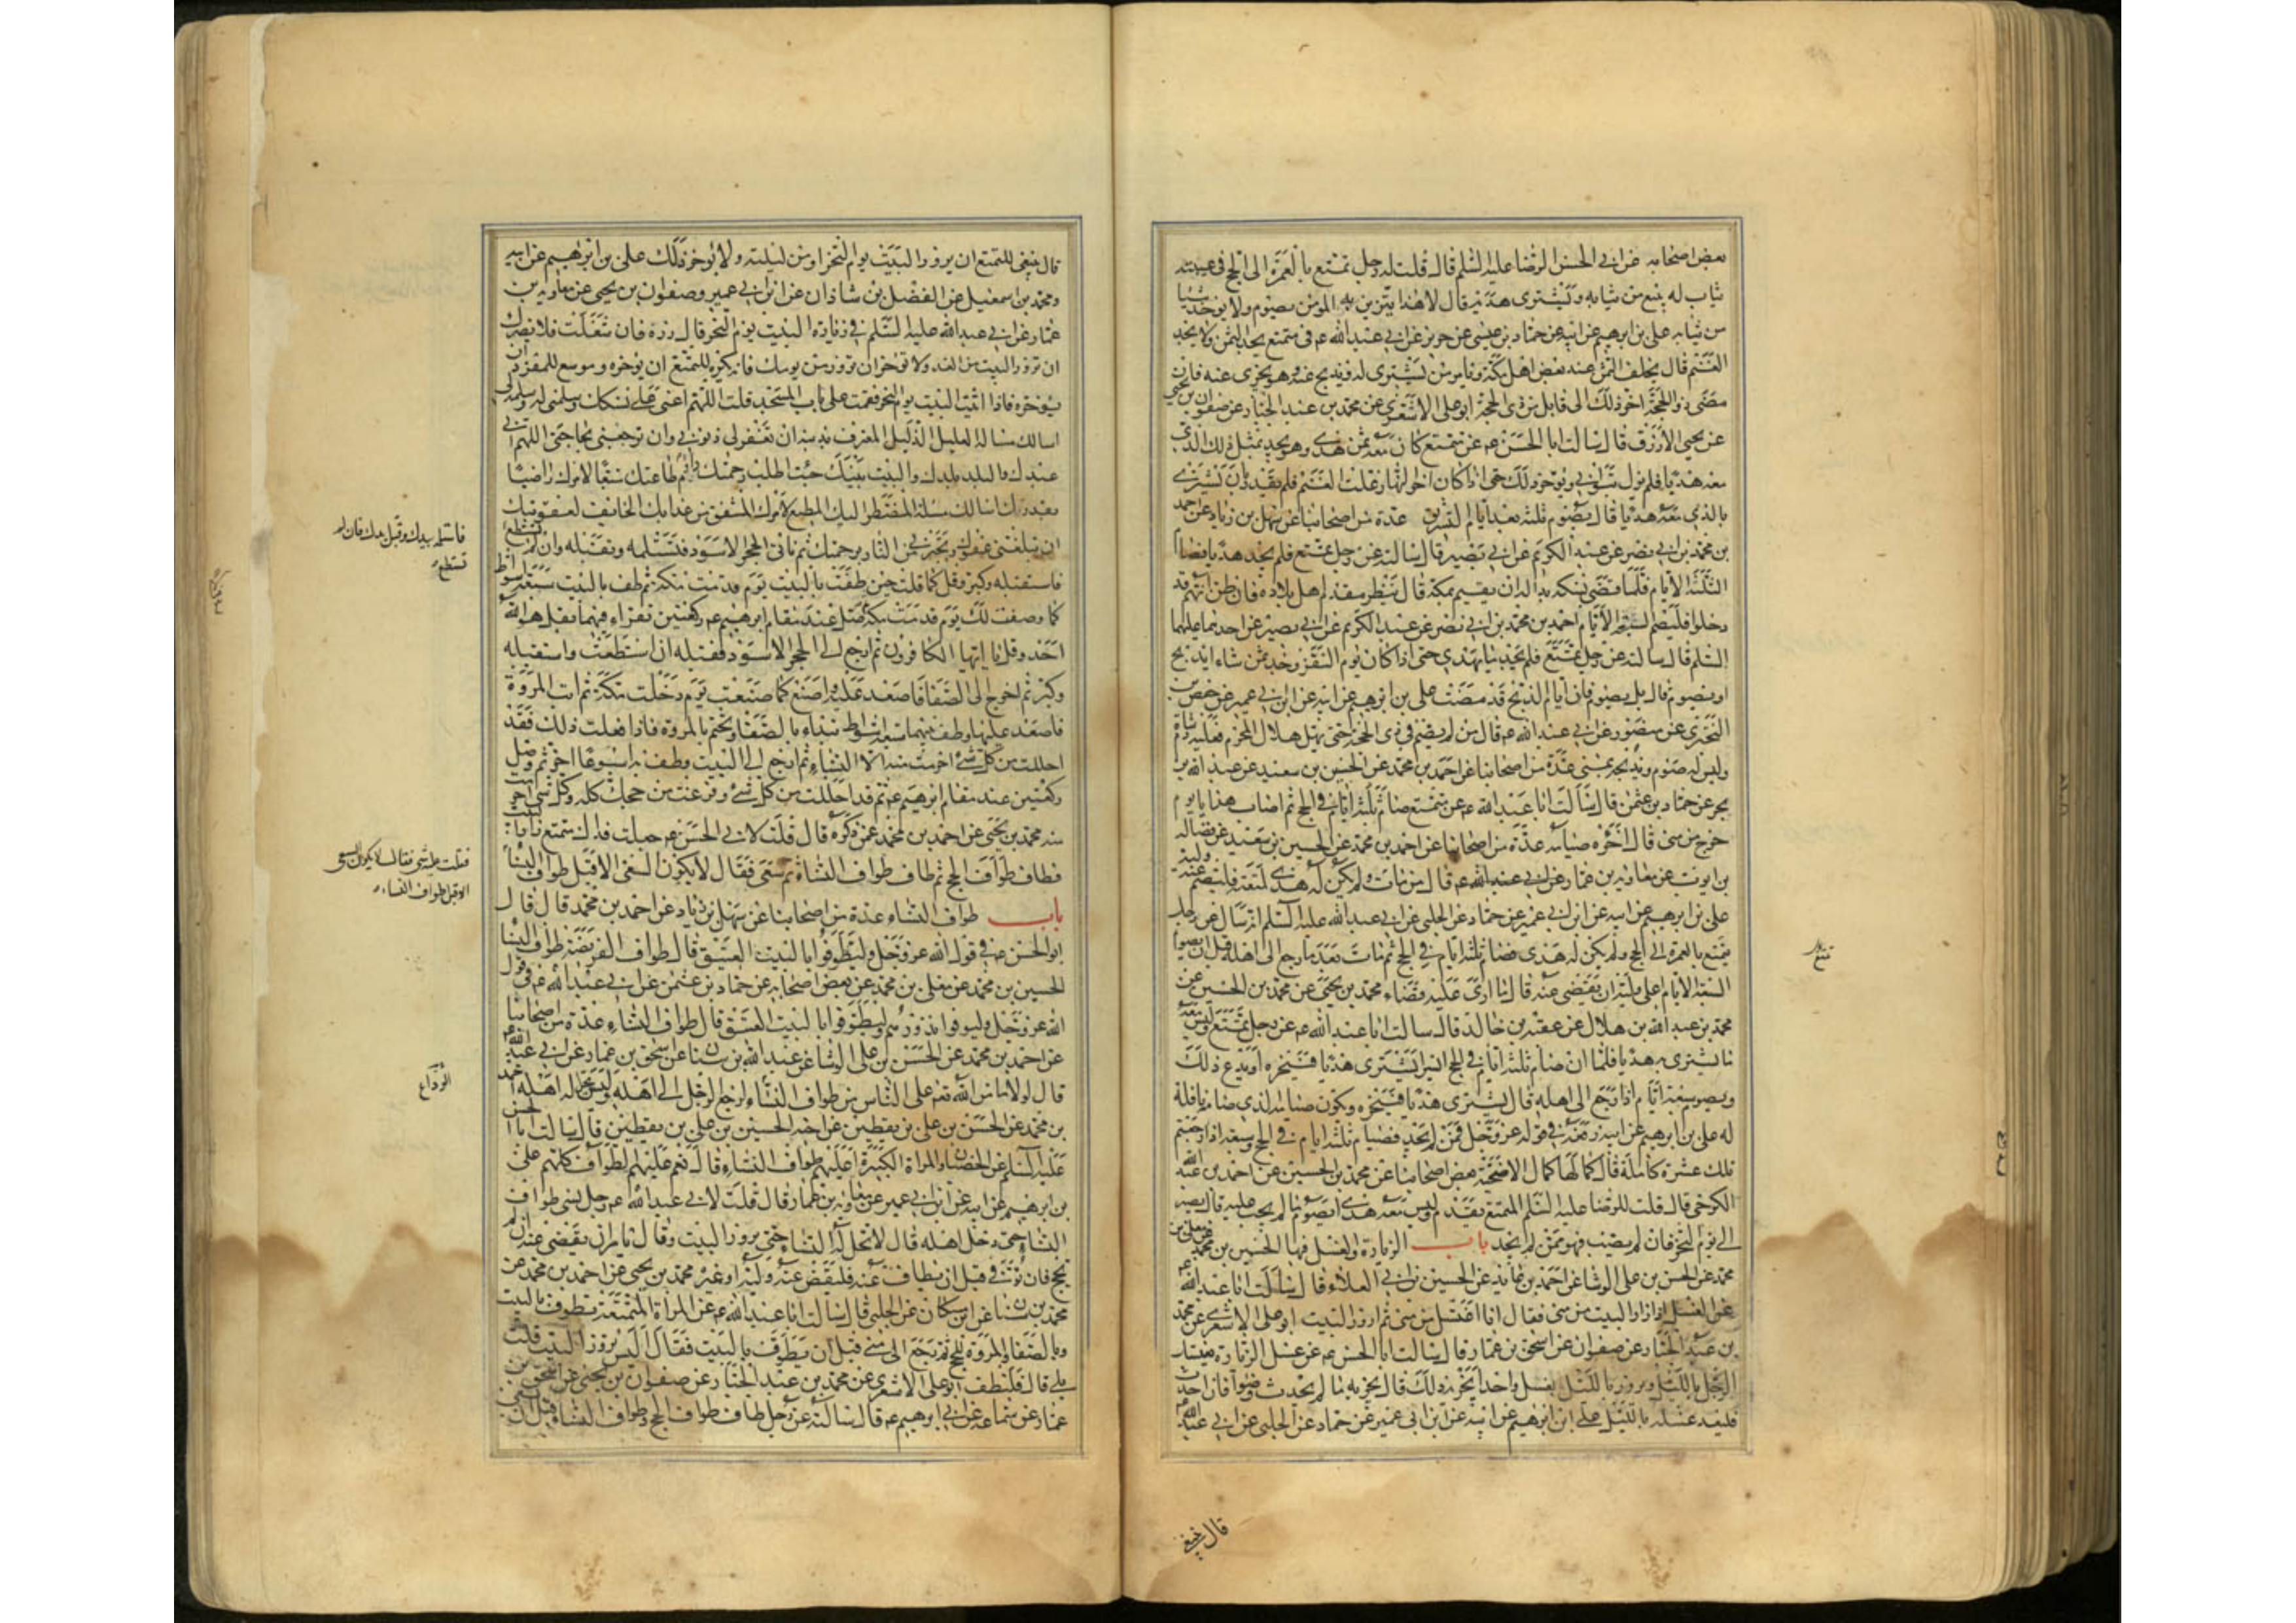 بعض اصحابه عن ابي الحسن الرضا عليه السلم قال قلت له رجل تمتع بالعمرة الى الحج في عيبته
ثياب له يبيع من ثيابه ويشترى هديه قال لا هذا يتزين به المومن يصوم ولا يوخذ شيئا
من ثيابه علي بن ابرهيم عن ابيه عن حماد بن عيسى عن حريز عن ابي عبد الله ع في متمتع يجد الثمن ولا يجد
الغنم قال يخلف الثمن عند بعض اهل مكة ويامر من يشترى له ويذبح عنه وهو يجزى عنه فان
مضى ذو الحجة اخر ذلك الى قابل من ذى الحجة ابو على الاشعري عن محمد بن عبد الجبار عن صفوان بن يحيى
عن يحيى الازرق قال سالت ابا الحسن ع عن متمتع كان معه ثمن هدى وهو يجد بمثل ذلك الذى
معه هديا فلم يزل يتوانى ويوخر ذلك حتى اذا كان اخر النهار غلت الغنم فلم يقدر بان يشترى
بالذي معه هديا قال يصوم ثلثة بعد ايام التشريق عدة من اصحابنا عن سهل بن زياد عن احمد
بن محمد بن ابي نصر عن عبد الكريم عن ابي بصير قال سالته عن رجل تمتع فلم يجد هديا فصام
الثلثة الايام فلما قضى نسكه بدا له ان يقيم بمكة قال ينتظر مقدم اهل بلاده فاذا ظن انهم قد
دخلوا فليصم السبعة الايام احمد بن محمد بن ابي نصر عن عبد الكريم عن ابي بصير عن احدهما عليهما
السلم قال سالته عن رجل تمتع فلم يجد ما يهدى حتى اذا كان يوم النفر وجد ثمن شاة ايذبح
او يصوم قال بل يصوم فان ايام الذبح قد مضت علي بن ابرهيم عن ابيه عن ابن ابي عمير عن حفص بن
البخترى عن منصور عن ابي عبد الله ع قال من لم يصم في ذى الحجة حتى يهل هلال المحرم فعليه دم شاة
وليس له صوم ويذبحه بمنى عدة من اصحابنا عن احمد بن محمد عن الحسين بن سعيد عن عبد الله بن
بحر عن حماد بن عثمن قال سالت ابا عبد الله ع عن متمتع صام ثلثة ايام في الحج ثم اصاب هديا يوم
خرج من منى قال اجزاه صيامه عدة من اصحابنا عن احمد بن محمد عن الحسين بن سعيد عن فضالة
بن ايوب عن معاوية بن عمار عن ابي عبد الله ع قال من مات ولم يكن له هدى لمتعته فليصم عنه وليه
علي بن ابرهيم عن ابيه عن ابن ابي عمير عن حماد عن الحلبي عن ابي عبد الله عليه السلم انه سال عن رجل
يتمتع بالعمرة الى الحج ولم يكن له هدى فصام ثلثة ايام في الحج ثم مات بعد ما رجع الى اهله قبل ان يصوم
السبعة الايام اعلى وليه ان يقضى عنه قال ما ارى عليه قضاء محمد بن يحيى عن محمد بن الحسين عن
محمد بن عبد الله بن هلال عن عقبة بن خالد قال سالت ابا عبد الله ع عن رجل تمتع وليس معه
ما يشترى به هديا فلما ان صام ثلثة ايام في الحج ايسر ايشترى هديا فينحره او يدع ذلك
ويصوم سبعة ايام اذا رجع الى اهله قال يشترى هديا فينحره ويكون صيامه الذى صامه نافلة
له علي بن ابرهيم عن ابيه رفعه في قوله عز وجل فمن لم يجد فصيام ثلثة ايام في الحج وسبعة اذا رجعتم
تلك عشرة كاملة قال كمالها كمال الاضحية بعض اصحابنا عن محمد بن الحسين عن احمد بن عبد الله
الكرخي قال قلت للرضا عليه السلم المتمتع يقدم وليس معه هدى ايصوم ما لم يجب عليه قال يصبر
الى يوم النحر فان لم يصب فهو ممن لم يجد باب الزيارة والغسل فيها الحسين بن محمد عن معلى بن
محمد عن الحسن بن علي الوشا عن احمد بن عايد عن الحسين بن ابي العلاء قال سالت ابا عبد الله ع
عن الغسل اذا زار البيت من منى فقال انا اغتسل من منى ثم ازور البيت ابو على الاشعرى عن محمد
بن عبد الجبار عن صفوان عن اسحق بن عمار قال سالت ابا الحسن ع عن غسل الزيارة يغتسل
الرجل بالليل ويزور بالليل بغسل واحد ايجزيه ذلك قال يجزيه ما لم يحدث وضوا فان احدث
فليعد غسله بالليل علي بن ابرهيم عن ابيه عن ابن ابي عمير عن حماد عن الحلبي عن ابي عبد الله ع
تمتع
قال ينبغي
قال ينبغى للمتمتع ان يزور البيت يوم النحر او من ليلته ولا يوخر ذلك علي بن ابرهيم عن ابيه
ومحمد بن اسمعيل عن الفضل بن شاذان عن ابن ابي عمير وصفوان بن يحيى عن معاوية بن
عمار عن ابي عبد الله عليه السلم في زيارة البيت يوم النحر قال زره فان شغلت فلا يضرك
ان تزور البيت من الغد ولا توخر ان تزور من يومك فانه يكره للمتمتع ان يوخره وموسع للمفرد ان
يوخره فاذا اتيت البيت يوم النحر فقمت على باب المسجد قلت اللهم اعني على نسكك وسلمني له وسلمه لي
اسالك مسالة العليل الذليل المعترف بذنبه ان تغفر لي ذنوبي وان ترجعني بحاجتي اللهم اني
عبدك والبلد بلدك والبيت بيتك جئت اطلب رحمتك واؤم طاعتك متبعا لامرك راضيا
بقدرك اسالك مسلة المضطر اليك المطيع لامرك المشفق من عذابك الخائف لعقوبتك
ان تبلغني عفوك وتجيرني من النار برحمتك ثم تاتي الحجر الاسود فتستلمه وتقبله وان لم تستطع
فاستقبله وكبر وقل كما قلت حين طفت بالبيت يوم قدمت مكة ثم طف بالبيت سبعة اشواط
كما وصفت لك يوم قدمت مكة ثم صل عند مقام ابرهيم ع ركعتين تقراء فيهما بقل هو الله
احد وقل يا ايها الكافرون ثم ارجع الى الحجر الاسود فقبله ان استطعت واستقبله
وكبر ثم اخرج الى الصفا فاصعد عليه واصنع كما صنعت يوم دخلت مكة ثم ائت المروة
فاصعد عليها وطف بينهما سبعة اشواط تبداء بالصفا وتختم بالمروة فاذا فعلت ذلك فقد
احللت من كل شئ احرمت منه الا النساء ثم ارجع الى البيت وطف به اسبوعا اخر ثم تصلى
ركعتين عند مقام ابرهيم ع ثم قد احللت من كل شئ وفرغت من حجك كله وكل شئ احرمت
منه محمد بن يحيى عن احمد بن محمد عمن ذكره قال قلت لابي الحسن ع جعلت فداك متمتع زار البيت
فطاف طواف الحج ثم طاف طواف النساء ثم سعى فقال لا يكون السعى الا قبل طواف النساء
باب طواف النساء عدة من اصحابنا عن سهل بن زياد عن احمد بن محمد قال قال
ابو الحسن ع في قول الله عز وجل وليطوفوا بالبيت العتيق قال طواف الفريضة طواف النساء
الحسين بن محمد عن معلى بن محمد عن بعض اصحابه عن حماد بن عثمن عن ابي عبد الله ع في قول
الله عز وجل وليوفوا نذورهم وليطوفوا بالبيت العتيق قال طواف النساء عدة من اصحابنا
عن احمد بن محمد عن الحسن بن علي الوشا عن عبد الله بن سنان عن اسحق بن عمار عن ابي عبد الله ع
قال لولا ما من الله به على الناس من طواف النساء لرجع الرجل الى اهله وليس يحل له اهله احمد
بن محمد عن الحسن بن علي بن يقطين عن اخيه الحسين بن علي بن يقطين قال سالت ابا الحسن
عليه السلم عن الخصيان والمراة الكبيرة اعليهم طواف النساء قال نعم عليهم الطواف كلهم علي
بن ابرهيم عن ابيه عن ابن ابي عمير عن معاوية بن عمار قال قلت لابي عبد الله ع رجل نسى طواف
النساء حتى دخل اهله قال لا تحل له النساء حتى يزور البيت وقال يامر ان يقضى عنه ان لم
يحج فان توفى قبل ان يطاف عنه فليقض عنه وليه او غيره محمد بن يحيى عن احمد بن محمد عن
محمد بن سنان عن ابن مسكان عن الحلبي قال سالت ابا عبد الله ع عن المراة المتمتعة تطوف بالبيت
وبالصفا والمروة للحج ثم ترجع الى منى قبل ان تطوف بالبيت فقال اليس تزور البيت قلت
بلى قال فلتطف ابو على الاشعرى عن محمد بن عبد الجبار عن صفوان بن يحيى عن اسحق بن
عمار عن سماعة عن ابي ابرهيم ع قال سالته عن رجل طاف طواف الحج وطواف النساء قبل ان يسعى
فاستلمه بيدك وقبل يدك فان لم
تستطع
فقلت عليه شئ فقال لا يكون السعى
الا قبل طواف النساء
الوداع